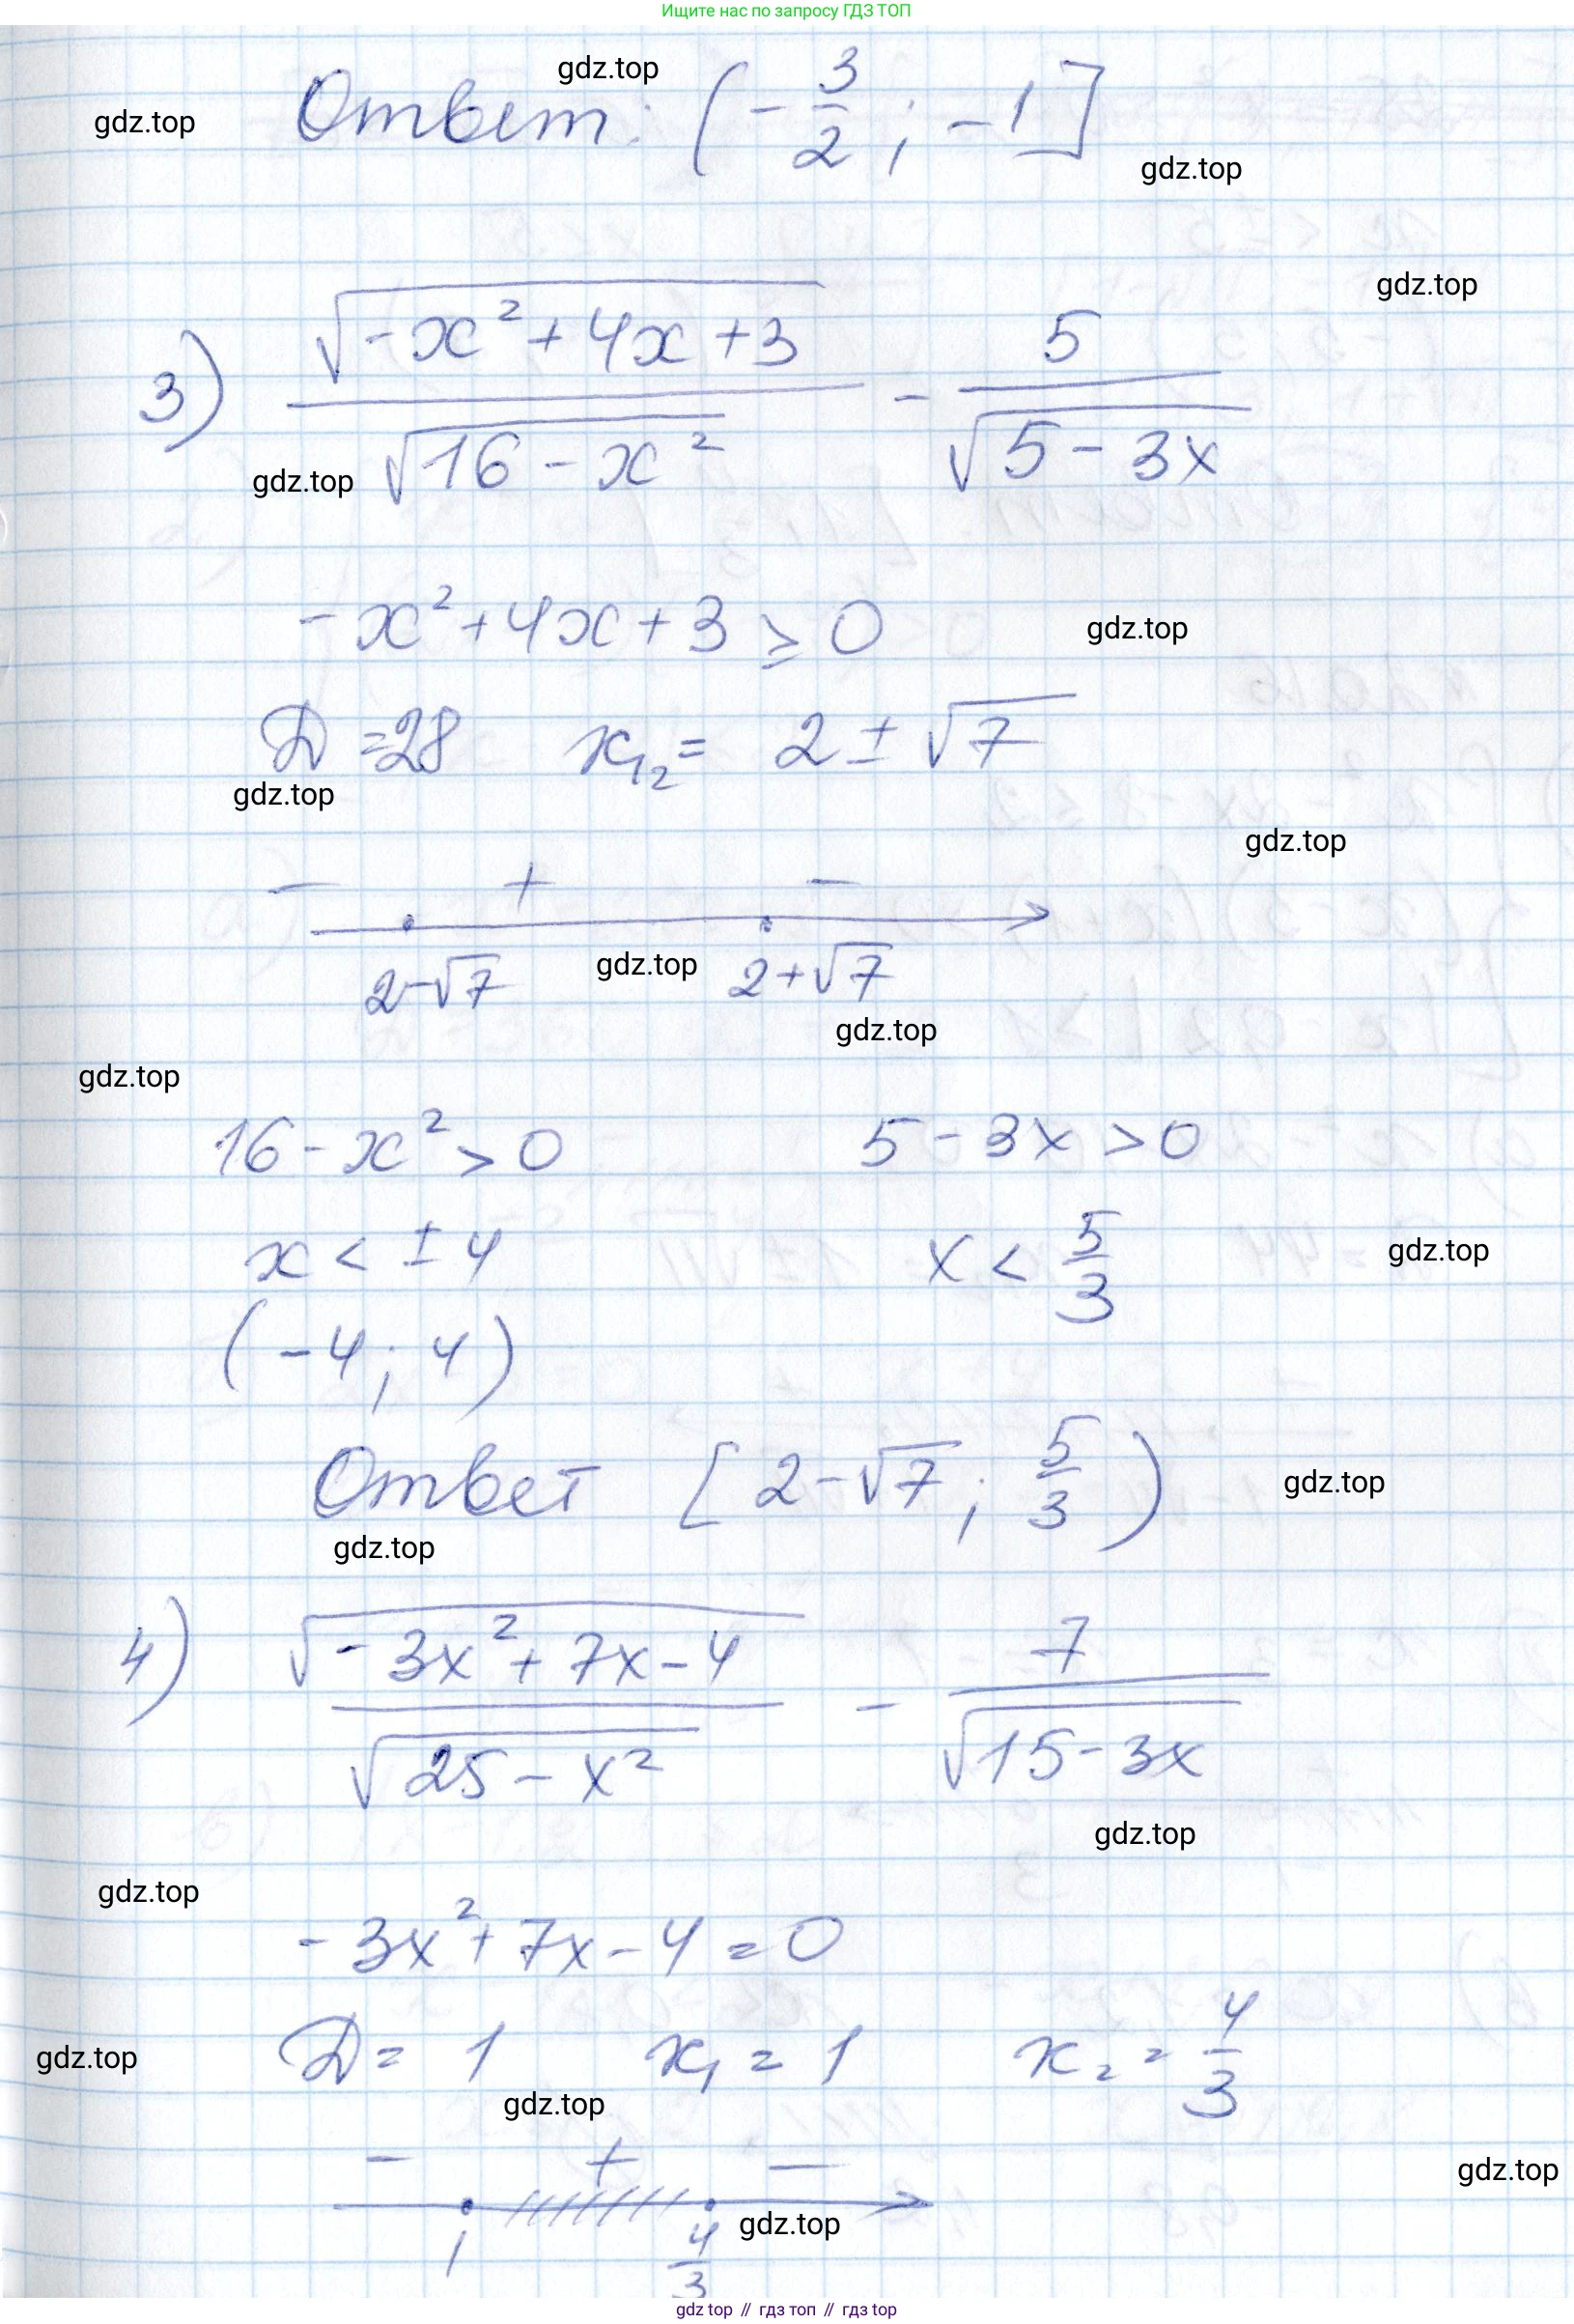 Ищите нас по запросу ГДЗ ТОП
gdz.top
gdz.top
Ответ: (-3/2; -1]
gdz.top
gdz.top
3) √(-x²+4x+3) / √(16-x²) - 5/√(5-3x)
gdz.top
-x²+4x+3 ⩾ 0
gdz.top
D=28 x₁₂= 2±√7
gdz.top
gdz.top
- + -
2-√7 gdz.top 2+√7
gdz.top
gdz.top
16-x²>0 5-3x>0
x<±4 x<5/3
gdz.top
(-4; 4)
Ответ [2-√7; 5/3)
gdz.top
gdz.top
4) √(-3x²+7x-4) / √(25-x²) - 7/√(15-3x)
gdz.top
gdz.top
-3x²+7x-4=0
D=1 x₁=1 x₂=4/3
gdz.top
gdz.top
- + -
gdz.top
1 4/3
gdz.top
gdz top // гдз топ // гдз top